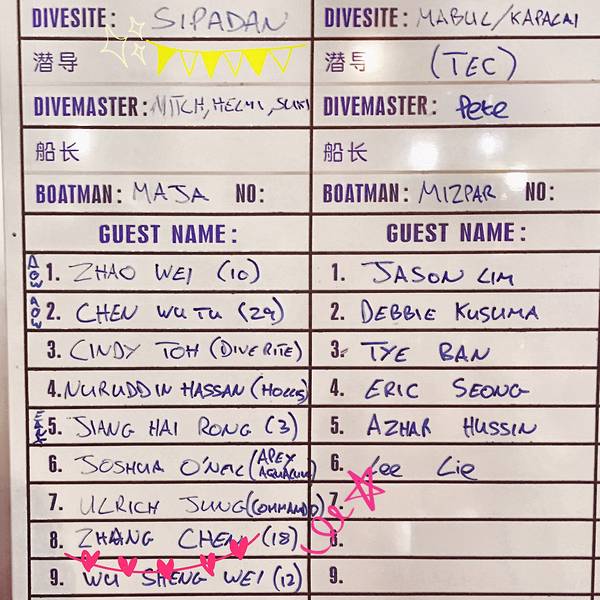 DIVESITE: SIPADAN
潜导
DIVEMASTER: MITCH, HELMI, SUKI
船长
BOATMAN: MAJA NO:
GUEST NAME:
AOW 1. ZHAO WEI (10)
AOW 2. CHEN WU TU (29)
3. CINDY TOH (DIVERITE)
4. NURUDDIN HASSAN (HOLLIS)
5. JIANG HAI RONG (3)
6. JOSHUA O'NEIL (APEX
7. ULRICH JUNG (COMMANDO)
8. ZHANG CHEN (18)
9. WU SHENG WEI (12)
DIVESITE: MABUL/KAPALAI
潜导 (TEC)
DIVEMASTER: Pete
船长
BOATMAN: MIZPAR NO:
GUEST NAME:
1. JASON LIM
2. DEBBIE KUSUMA
3. TYE BAN
4. ERIC SEONG
5. AZHAR HUSSIN
6. Lee Lie
7.
8.
9.